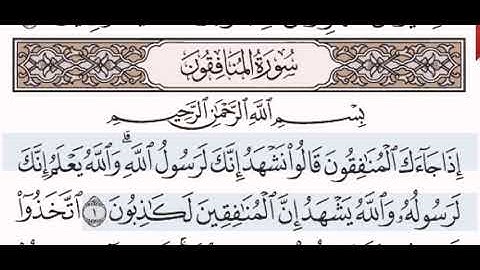 سُورَةُ المُنَافِقُونَ
بِسْمِ اللَّهِ الرَّحْمَٰنِ الرَّحِيمِ
إِذَا جَآءَكَ الْمُنَافِقُونَ قَالُوا نَشْهَدُ إِنَّكَ لَرَسُولُ اللَّهِ ۗ وَاللَّهُ يَعْلَمُ إِنَّكَ
لَرَسُولُهُ وَاللَّهُ يَشْهَدُ إِنَّ الْمُنَافِقِينَ لَكَاذِبُونَ ١ اتَّخَذُوٓا